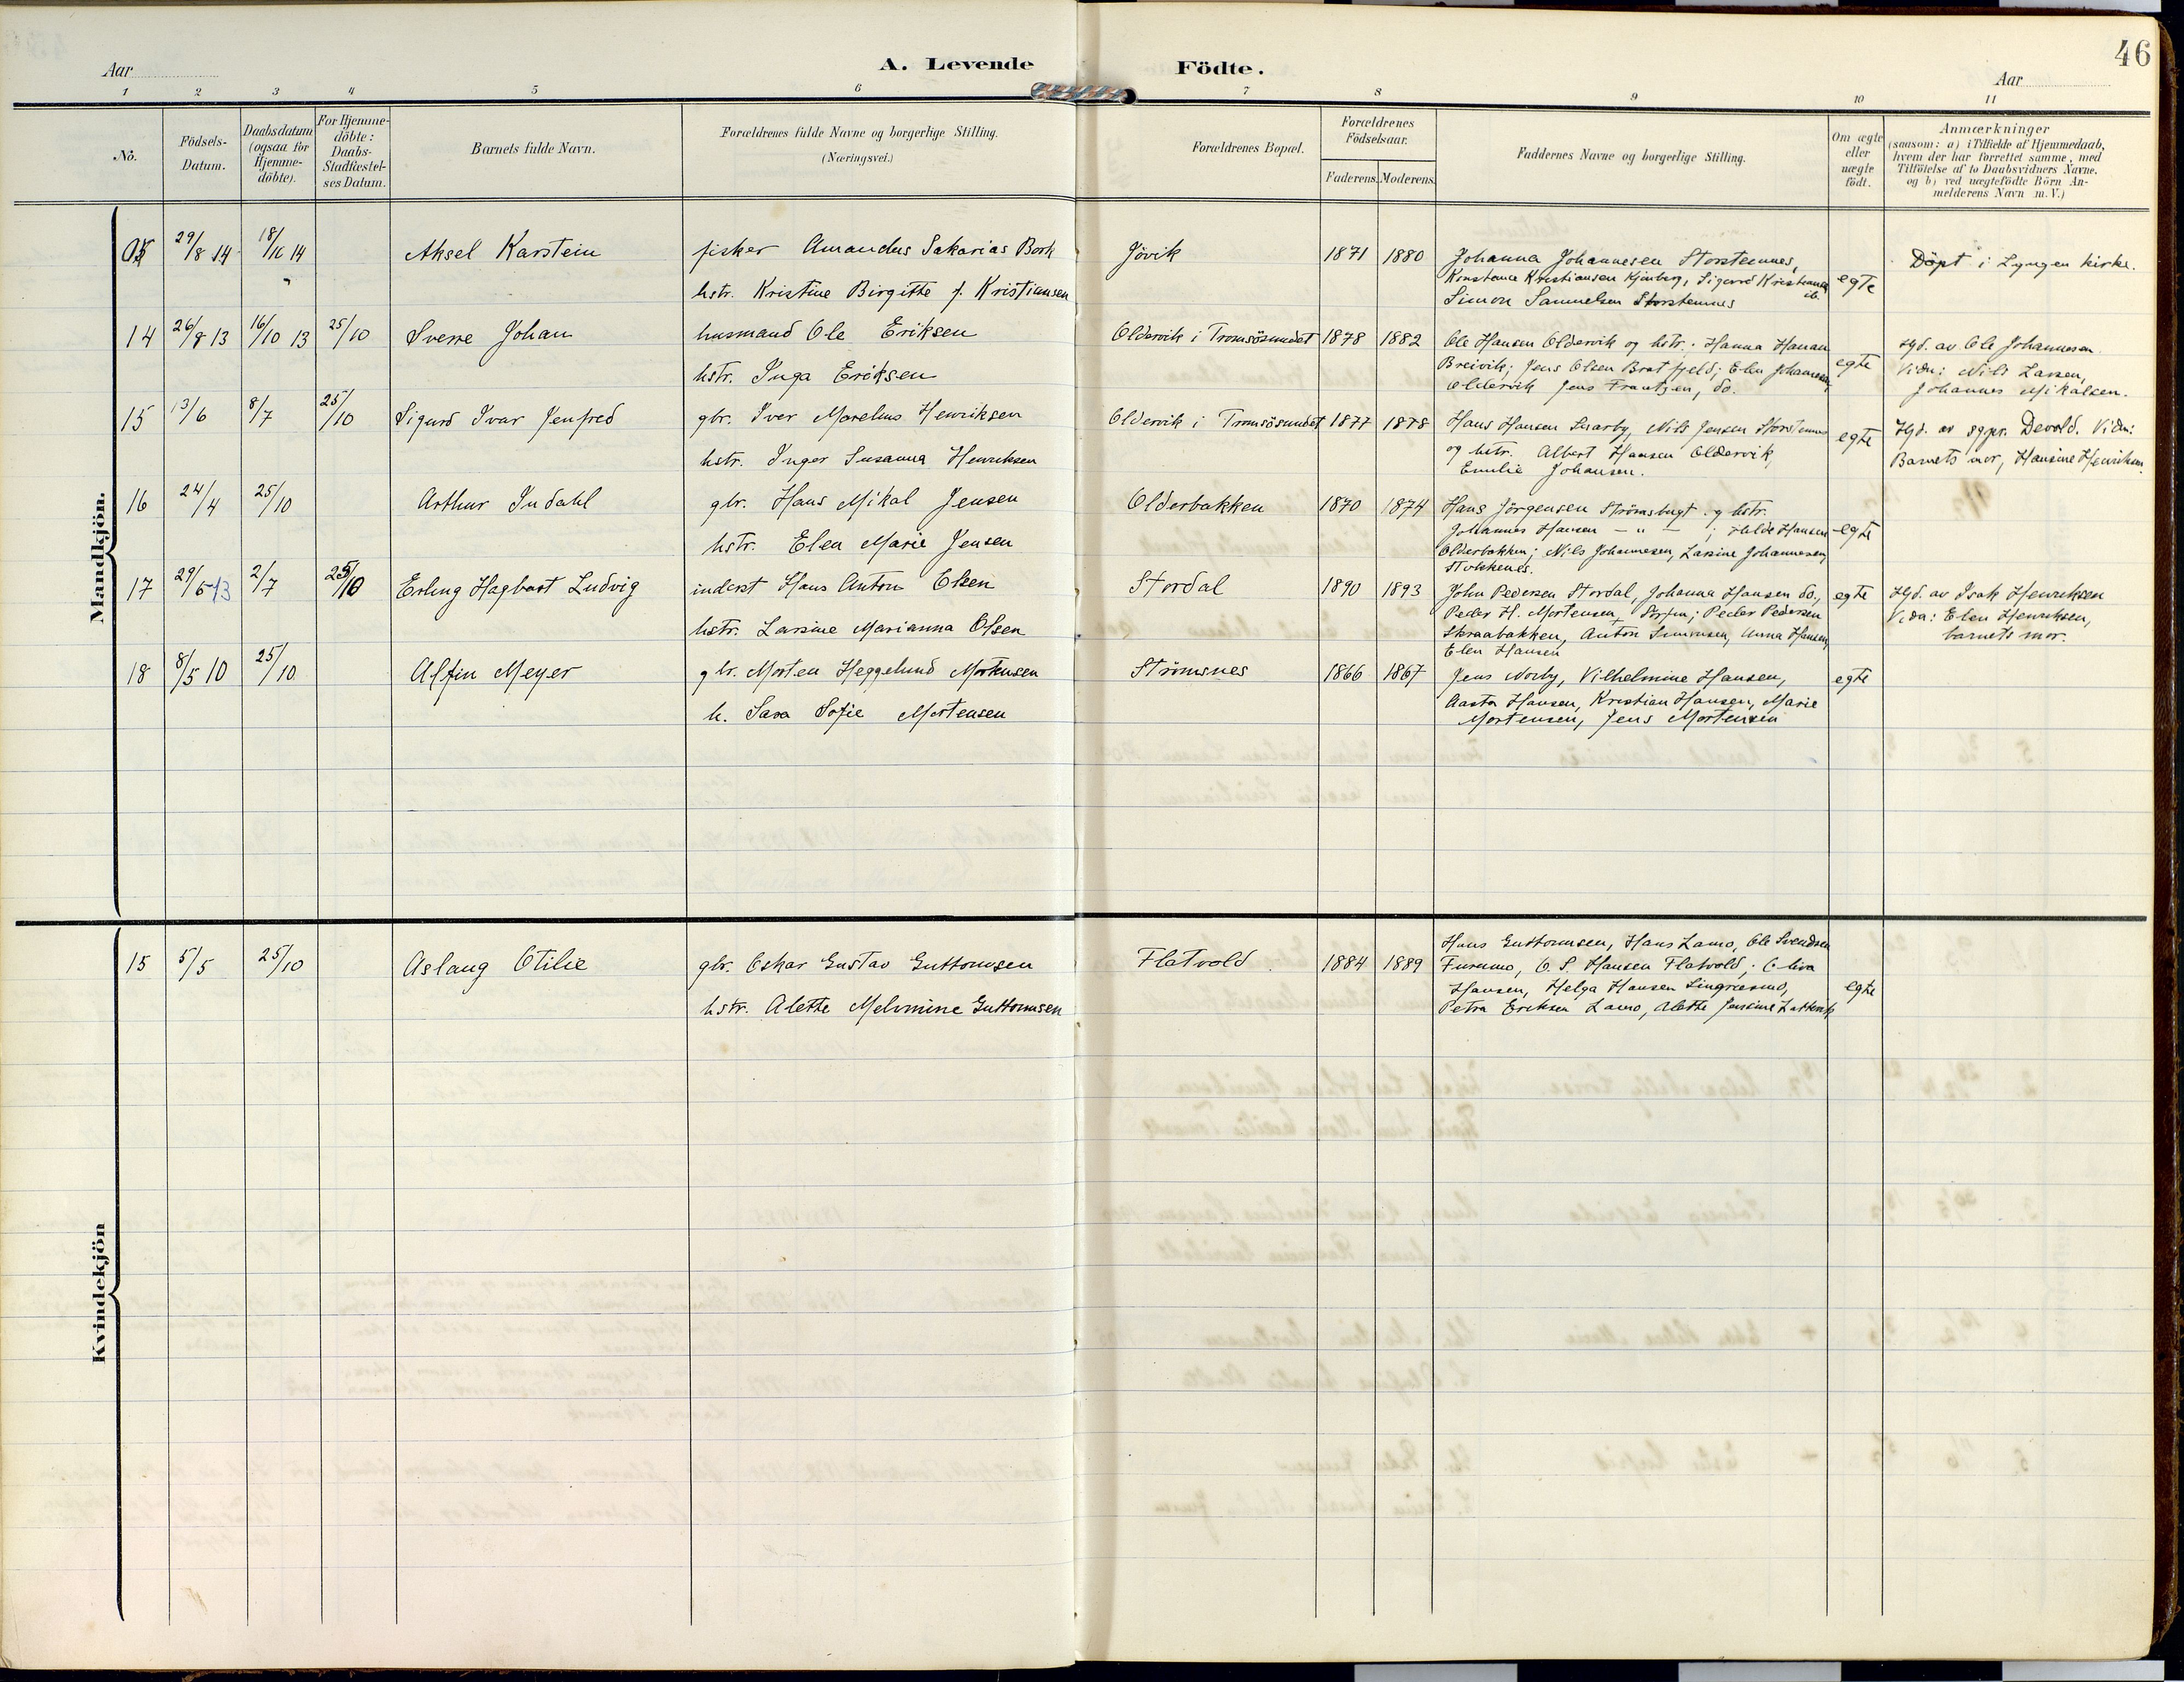 46
A. Levende Födte.
Aar
Aar
1 2 3 4 5 6 7 8 9 10 11
No.
Födsels-
Datum.
Daabsdatum
(ogsaa for
Hjemme-
döbte).
For Hjemme-
döbte:
Daabs-
Stadfæstel-
ses Datum.
Barnets fulde Navn.
Forældrenes fulde Navne og borgerlige Stilling.
(Næringsvei.)
Forældrenes Bopæl.
Forældrenes
Födselsaar.
Faderens. Moderens.
Faddernes Navne og borgerlige Stilling.
Om ægte
eller
uægte
födt.
Anmærkninger
(saasom: a) i Tilfælde af Hjemmedaab,
hvem der har forrettet samme, med
Tilföielse af to Daabsvidners Navne,
og b) ved uægtefödte Börn An-
melderens Navn m.V.)
Mandkjön.
29/8 14 Aksel Karstein fisker Amandus Sakarias Bork Jövik 1871 1880 Johanna Johannesen Storsteinnes, Döpt i Lyngen kirke.
hstr. Kristine Birgitte f. Kristiansen Konstanse Kristiansen, Sigurd Kristiansen ib. egte
Simon Samuelsen Storsteinnes
14 26/8 13 16/10 13 25/10 Sverre Johan husmand Ole Eriksen Oldervik i Tromsösundet 1878 1882 Ole Hansen Oldervik og hstr.; Hanna Hansen Hjd. av Ole Johannesen.
hstr. Inga Eriksen Breivik; Jens Olsen Bratfjeld; Elen Johannesen egte Vidn: Nils Larsen,
Oldervik Jens Frantzen, do. Johannes Mikalsen.
15 13/6 8/7 25/10 Sigurd Ivar Jenfred gbr. Iver Marelius Henriksen Oldervik i Tromsösundet 1877 1878 Hans Hansen Snarby, Nils Jensen Storsteinnes egte Hjd. av sgpr. Devold. Vidn:
hstr. Inger Susanna Henriksen og hstr. Albert Hansen Oldervik, Barnets mor, Hansine Henriksen.
Emilie Johansen.
16 24/4 25/10 Arthur Indahl gbr. Hans Mikal Jensen Olderbakken 1870 1874 Hans Jörgensen Strömsbugt og hstr.
hstr. Elen Marie Jensen Johannes Hansen — " — ; Hansen egte
Olderbakken; Nils Johannesen, Larsine Johannesen,
Stokkenes.
17 29/5 13 2/7 25/10 Erling Hagbart Ludvig inderst Hans Anton Olsen Stordal 1890 1893 John Pedersen Stordal, Johanna Hansen do., egte Hjd. av Isak Henriksen
hstr. Larsine Marianna Olsen Peder H. Mortensen, ; Peder Pedersen Vidn: Elen Henriksen,
Skraabakken, Anton Simonsen, Anna Hansen, barnets mor.
Elen Hansen
18 8/5 10 25/10 Alfin Meyer gbr. Morten Heggelund Mortensen Strömsnes 1866 1867 Jens Norby, Vilhelmine Hansen, egte
h. Sara Sofie Mortensen Aasta Hansen, Kristian Hansen, Marie
Mortensen, Jens Mortensen
Kvindekjön
Hans Guttormsen, Hans Lamo, Ole Svendsen
15 5/5 25/10 Aslaug Otilie gbr. Oskar Gustav Guttormsen Flatvold 1884 1889 Furumo, O. S. Hansen Flatvold; Oliva
Hansen, Helga Hansen, egte
hstr. Alette Melvmine Guttormsen Petra Eriksen Lamo, Alette Jensine